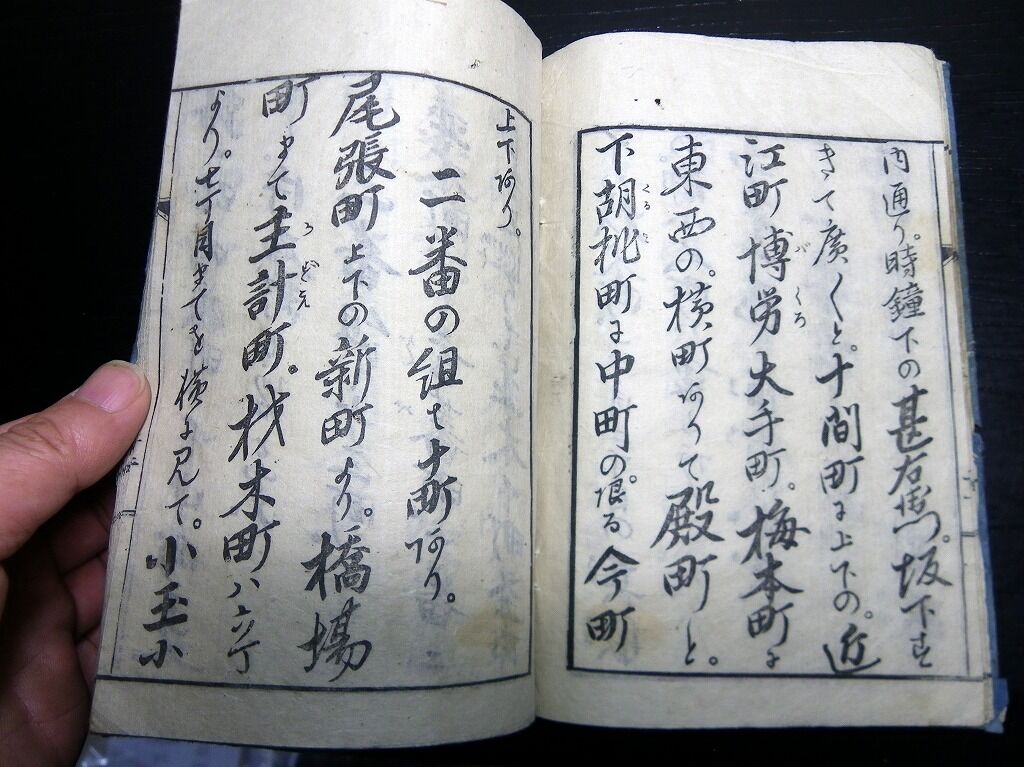 内通り。時鐘下の甚右衛門。坂下すぎ
きて廣くと。十間町に上下の。近
江町博労大手町。梅本町に
東西の。横町ありて殿町と。
下胡桃町に中町の。隠る今町
上下あり。
二番の組は十町あり。
尾張町上下の新町より。橋場
町まで主計町。材木町ハ六丁
より。七丁目までを横に見て。小玉小